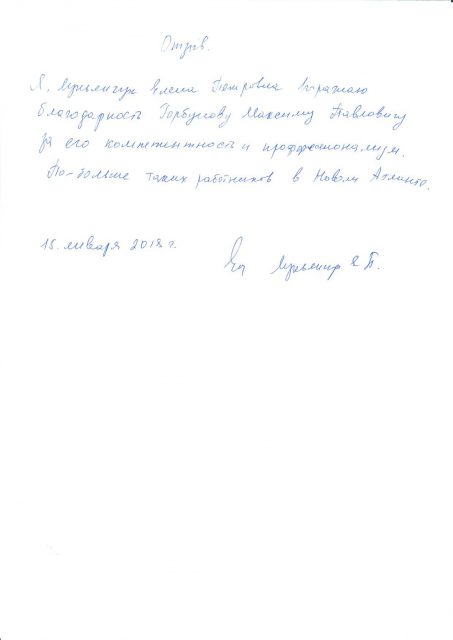 Отзыв.
Я, Елена Петровна выражаю
благодарность Горбунову Максиму Павловичу
за его компетентность и профессионализм.
По-больше таких работников в Новом Атланте.
15. января 2018 г.
Е П.